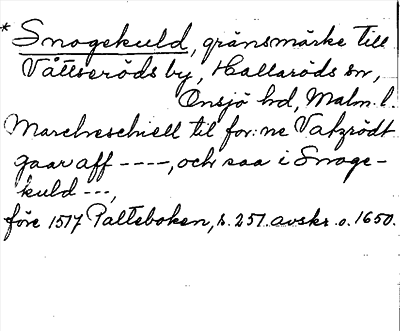 * Snogekuld, gränsmärke till
Våttseröds by, Hallaröds sn,
Onsjö hd, Malm. l.
Marcheschiell til for:ne Vatzrödt
gaar aff ----, och saa i Snoge-
kuld ---,
före 1517 Palteboken, s. 251. avskr. o. 1650.